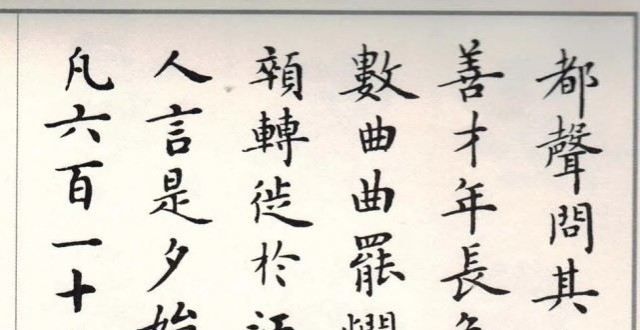 都聲問其
善才年長
數曲曲罷憫
顇轉徙於江
人言是夕始
凡六百一十